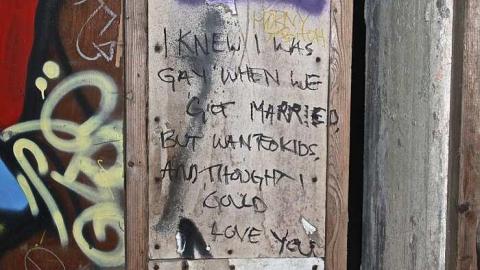 HORNY
I KNEW I WAS
GAY WHEN WE
GOT MARRIED,
BUT WANTED KIDS,
AND THOUGHT I
COULD
LOVE YOU